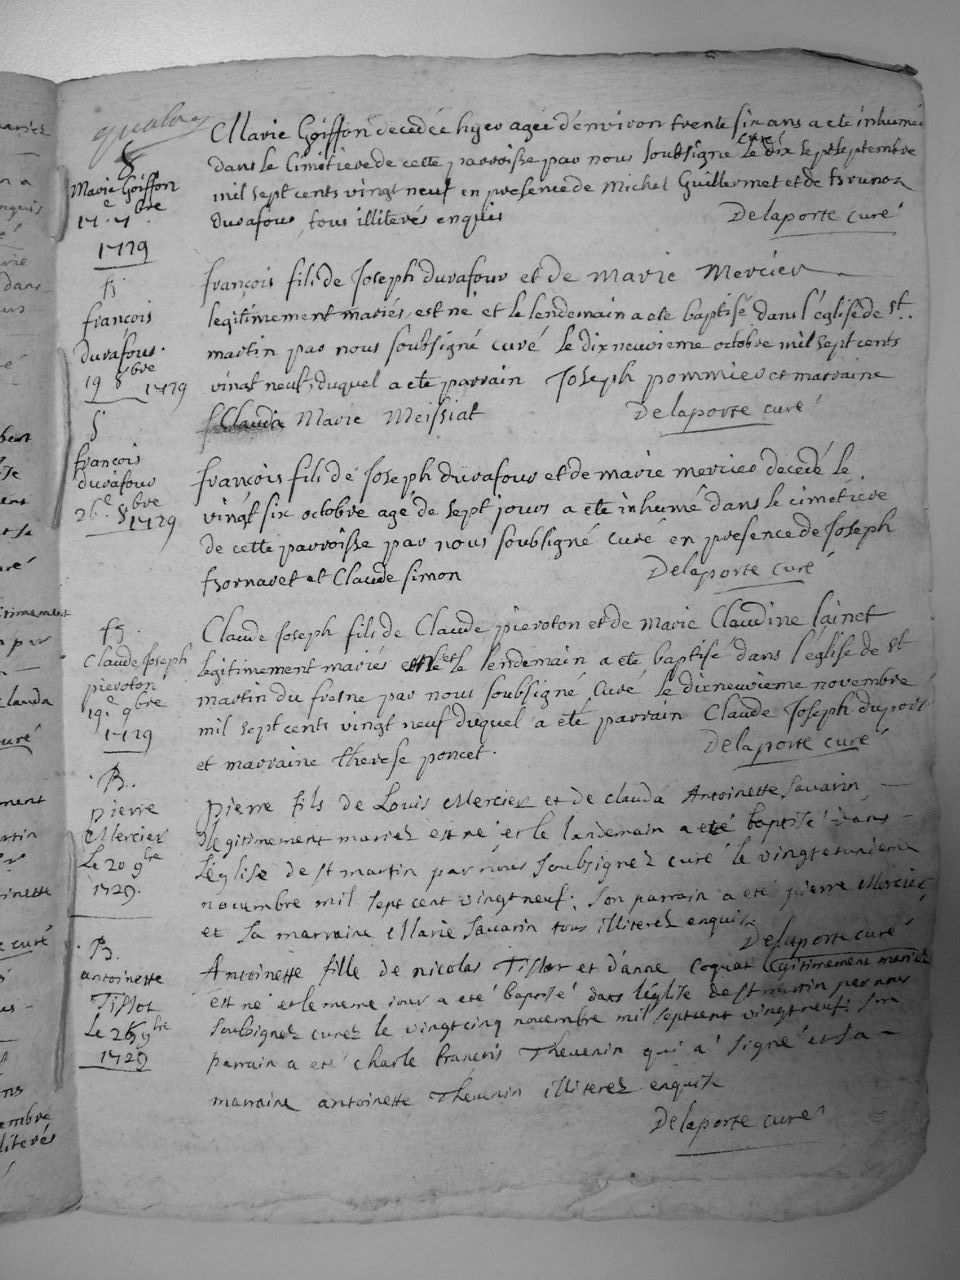 Marie Goiffon decedée hyer agée d'environ trente six ans a eté inhumé
dans le Cimetiere de cette parroisse par nous soubsigné curé le dix sept septembre
mil sept cents vingt neuf en presence de Michel Guillermet et de
durafour tous illiterés enquis
Delaporte curé
S
Marie Goiffon
17e 7bre
1729
françois fils de Joseph durafour et de Marie Mercier
legitimement mariés est né et le lendemain a ete baptisé dans l'église de st.
martin par nous soubsigné curé le dixneuvieme octobre mil sept cents
vingt neuf, duquel a eté parrain Joseph pommier et marraine
Claudia Marie Meissiat
Delaporte curé
françois
durafour.
19 8bre 1729
françois fils de Joseph durafour et de marie mercier decedé le
vingt six octobre agé de sept jours a eté inhumé dans le cimetiére
de cette parroisse par nous soubsigné curé en presence de Joseph
Bornaret et Claude simon
Delaporte curé
S
françois
durafour
26e 8bre
1729
Claude Joseph fils de Claude pieroton et de Marie Claudine Lainet
legitimement mariés est né et le lendemain a eté baptisé dans l'église de st
martin du fresne par nous soubsigné curé le dixneuvieme novembre
mil sept cents vingt neuf duquel a eté parrain Claude Joseph
et marraine therese poncet.
Delaporte curé
Claude Joseph
pieroton
19e 9bre
1729
Pierre fils de Louis Mercier et de clauda Antoinette Savarin
legitimement mariez est né et le landemain a eté baptisé dans
l'église de st martin par nous soubsignez curé le vingt et unieme
novembre mil sept cent vingt neuf; son parrain a eté pierre Mercier
et sa marraine Marie Savarin tous illiterez enquis
Delaporte curé
B.
pierre
Mercier
Le 20 9bre
1729.
Antoinette fille de nicolas Tissot et d'anne Coquat legitimement mariez
est né et le meme jour a eté baptisé dans l'église de st martin par nous
soubsignez curez le vingtcinq novembre mil septcent vingt neuf; son
parrain a eté charle francois Thevenin qui a signé et sa
marraine antoinette Thevenin illiterez enquise
Delaporte curé
B.
antoinette
Tissot
Le 25 9bre
1729